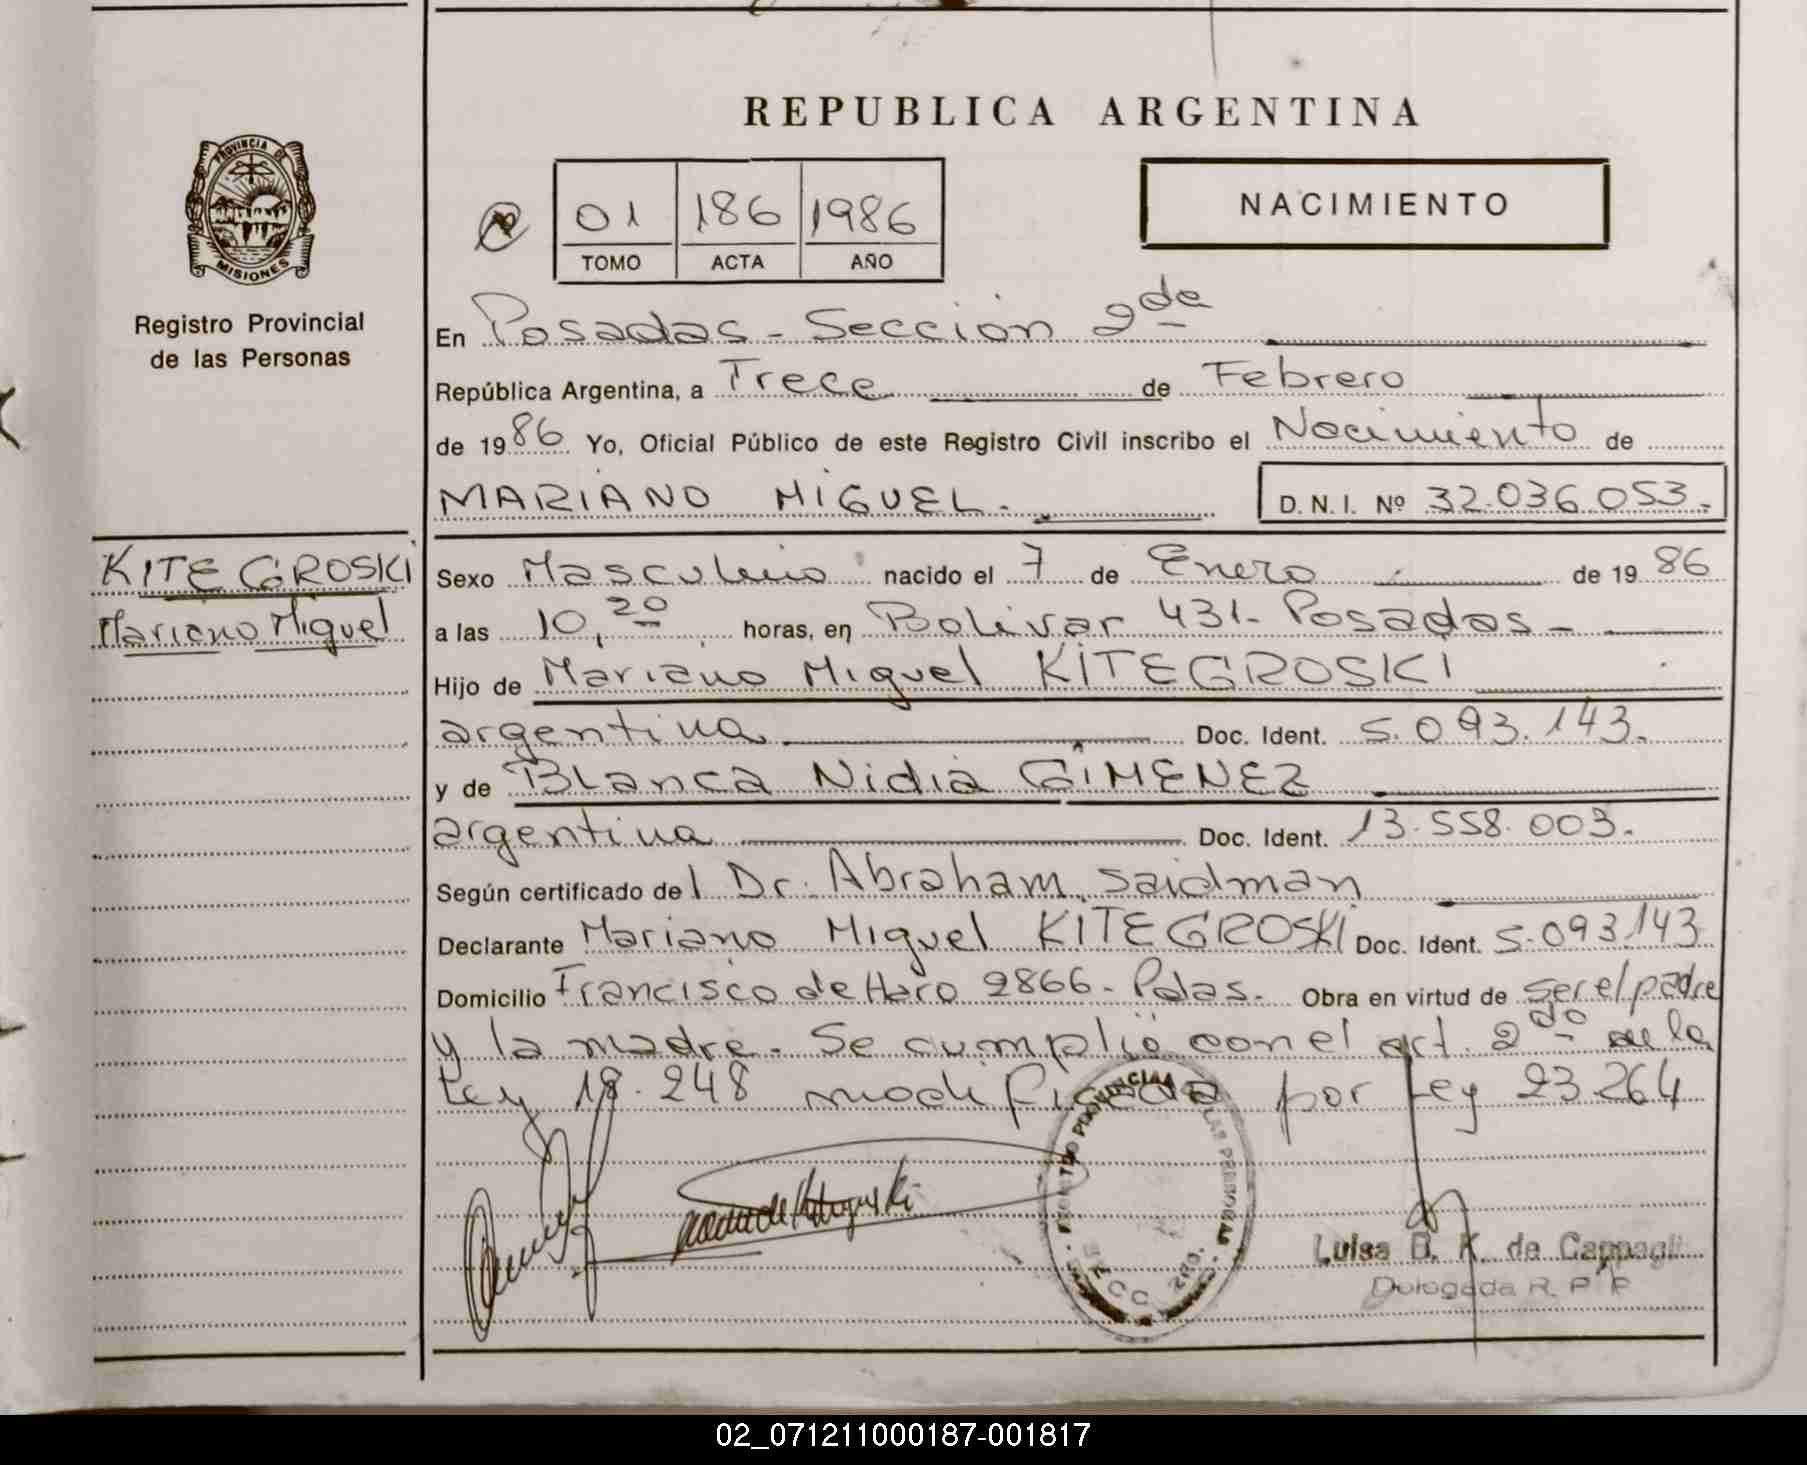 REPUBLICA ARGENTINA
PROVINCIA DE
MISIONES
Registro Provincial
de las Personas
01 186 1986
TOMO ACTA AÑO
NACIMIENTO
En Posadas - Sección 2da
República Argentina, a Trece de Febrero
de 1986 Yo, Oficial Público de este Registro Civil inscribo el Nacimiento de
MARIANO MIGUEL. D.N.I. Nº 32.036.053.-
KITEGROSKI
Mariano Miguel
Sexo Masculino nacido el 7 de Enero de 1986
a las 10,20 horas, en Bolivar 431- Posadas -
Hijo de Mariano Miguel KITEGROSKI
argentina Doc. Ident. 5.093.143.
y de Blanca Nidia GIMENEZ
argentina Doc. Ident. 13.558.003.
Según certificado del Dr. Abraham Saidman
Declarante Mariano Miguel KITEGROSKI Doc. Ident. 5.093.143
Domicilio Francisco de Haro 2866 - Pdas. Obra en virtud de ser el padre
y la madre. Se cumplió con el art. 2do de la
Ley 18.248 modificada por Ley 23.264
Luisa B. K. de Cappagli
Delegada R. P. P.
02_071211000187-001817